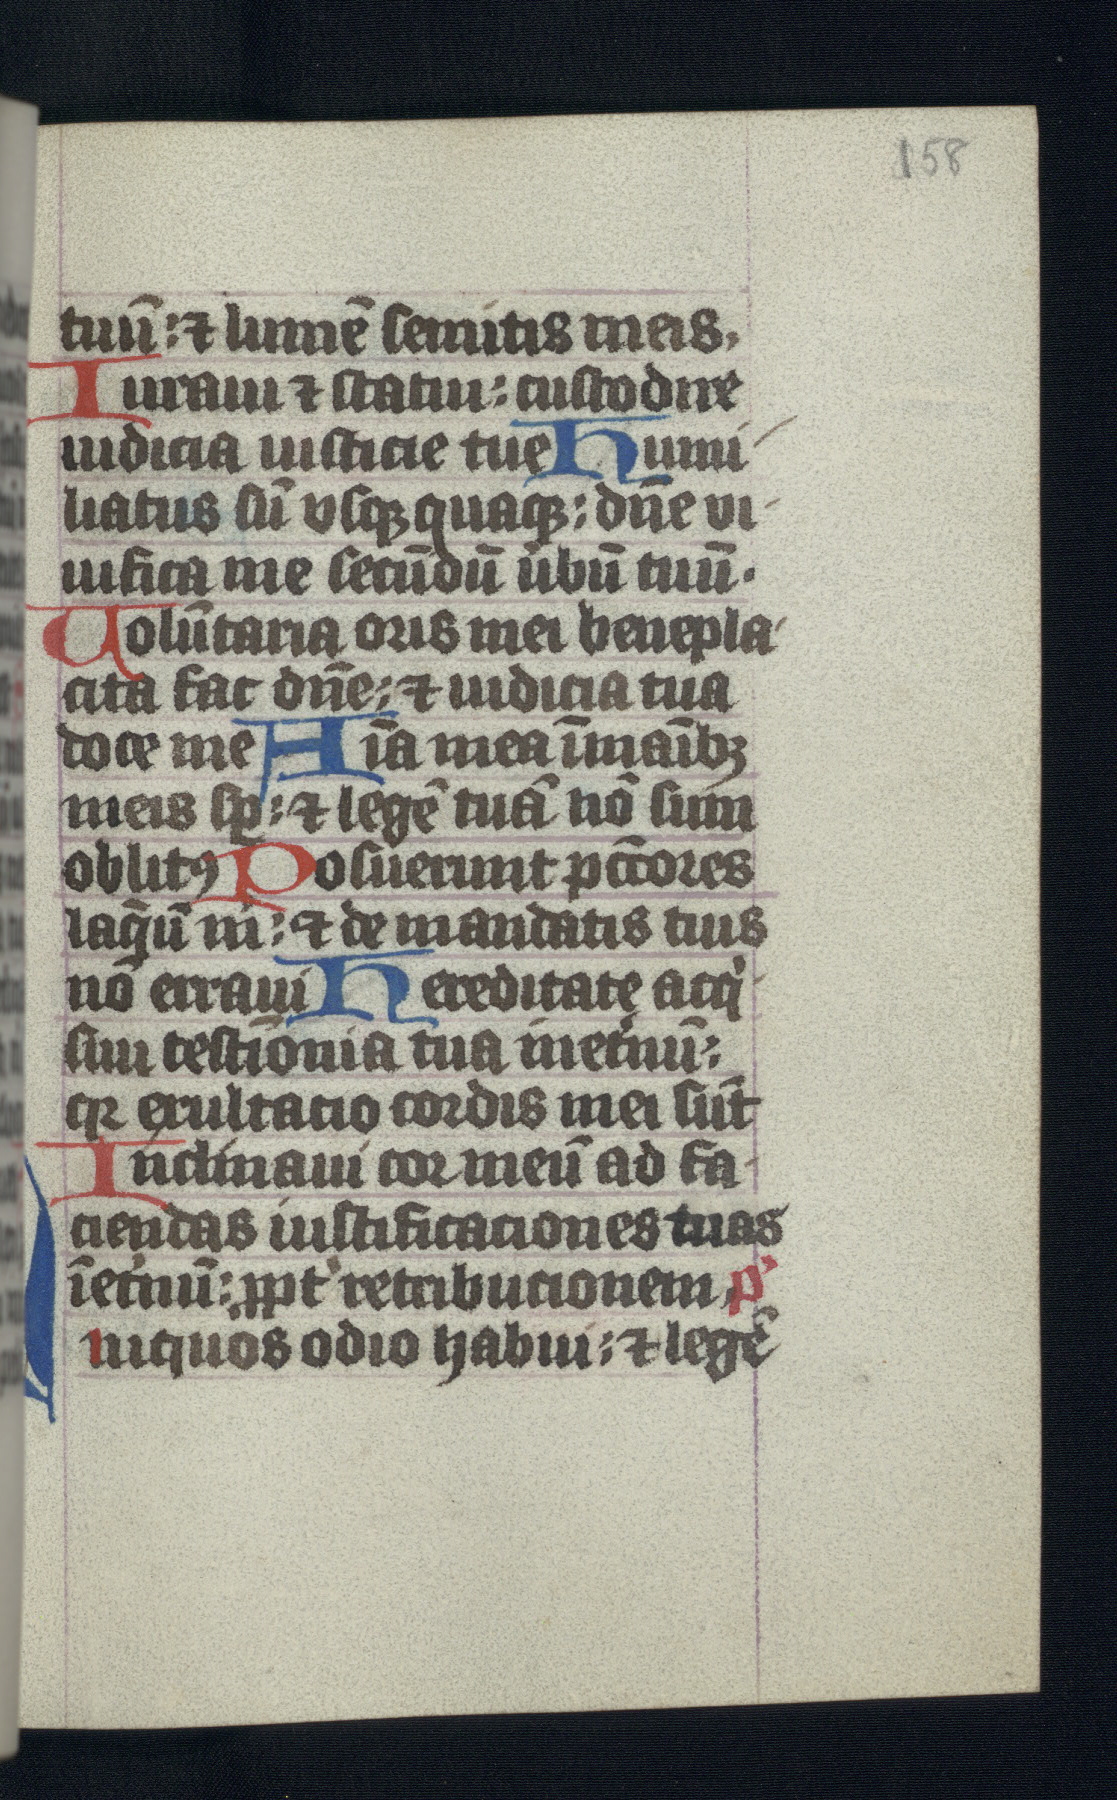 158
tuū: ⁊ lumē semitis meis.
Iuraui ⁊ statui: custodire
iudicia iusticie tue Humi
liatus sū vsqꝫquaqꝫ: dn̄e vi
uifica me secūdū v̄bū tuū.
Uolūtaria oris mei benepla
cita fac dn̄e: ⁊ iudicia tua
doce me Aīa mea ī maībꝫ
meis sp̄: ⁊ legē tuā nō sum
oblitꝰ Posuerunt pctōres
laq̄ū m̄: ⁊ de mandatis tuis
nō erraui Hereditate acq̇
siui testiōnia tua inet̓nū:
qꝛ exultacio cordis mei sūt
Inclinaui cor meū ad fa
ciendas iustificaciones tuas
īet̓nū: ꝓpt̓ retribucionem. p̓
Iniquos odio habui: ⁊ legē